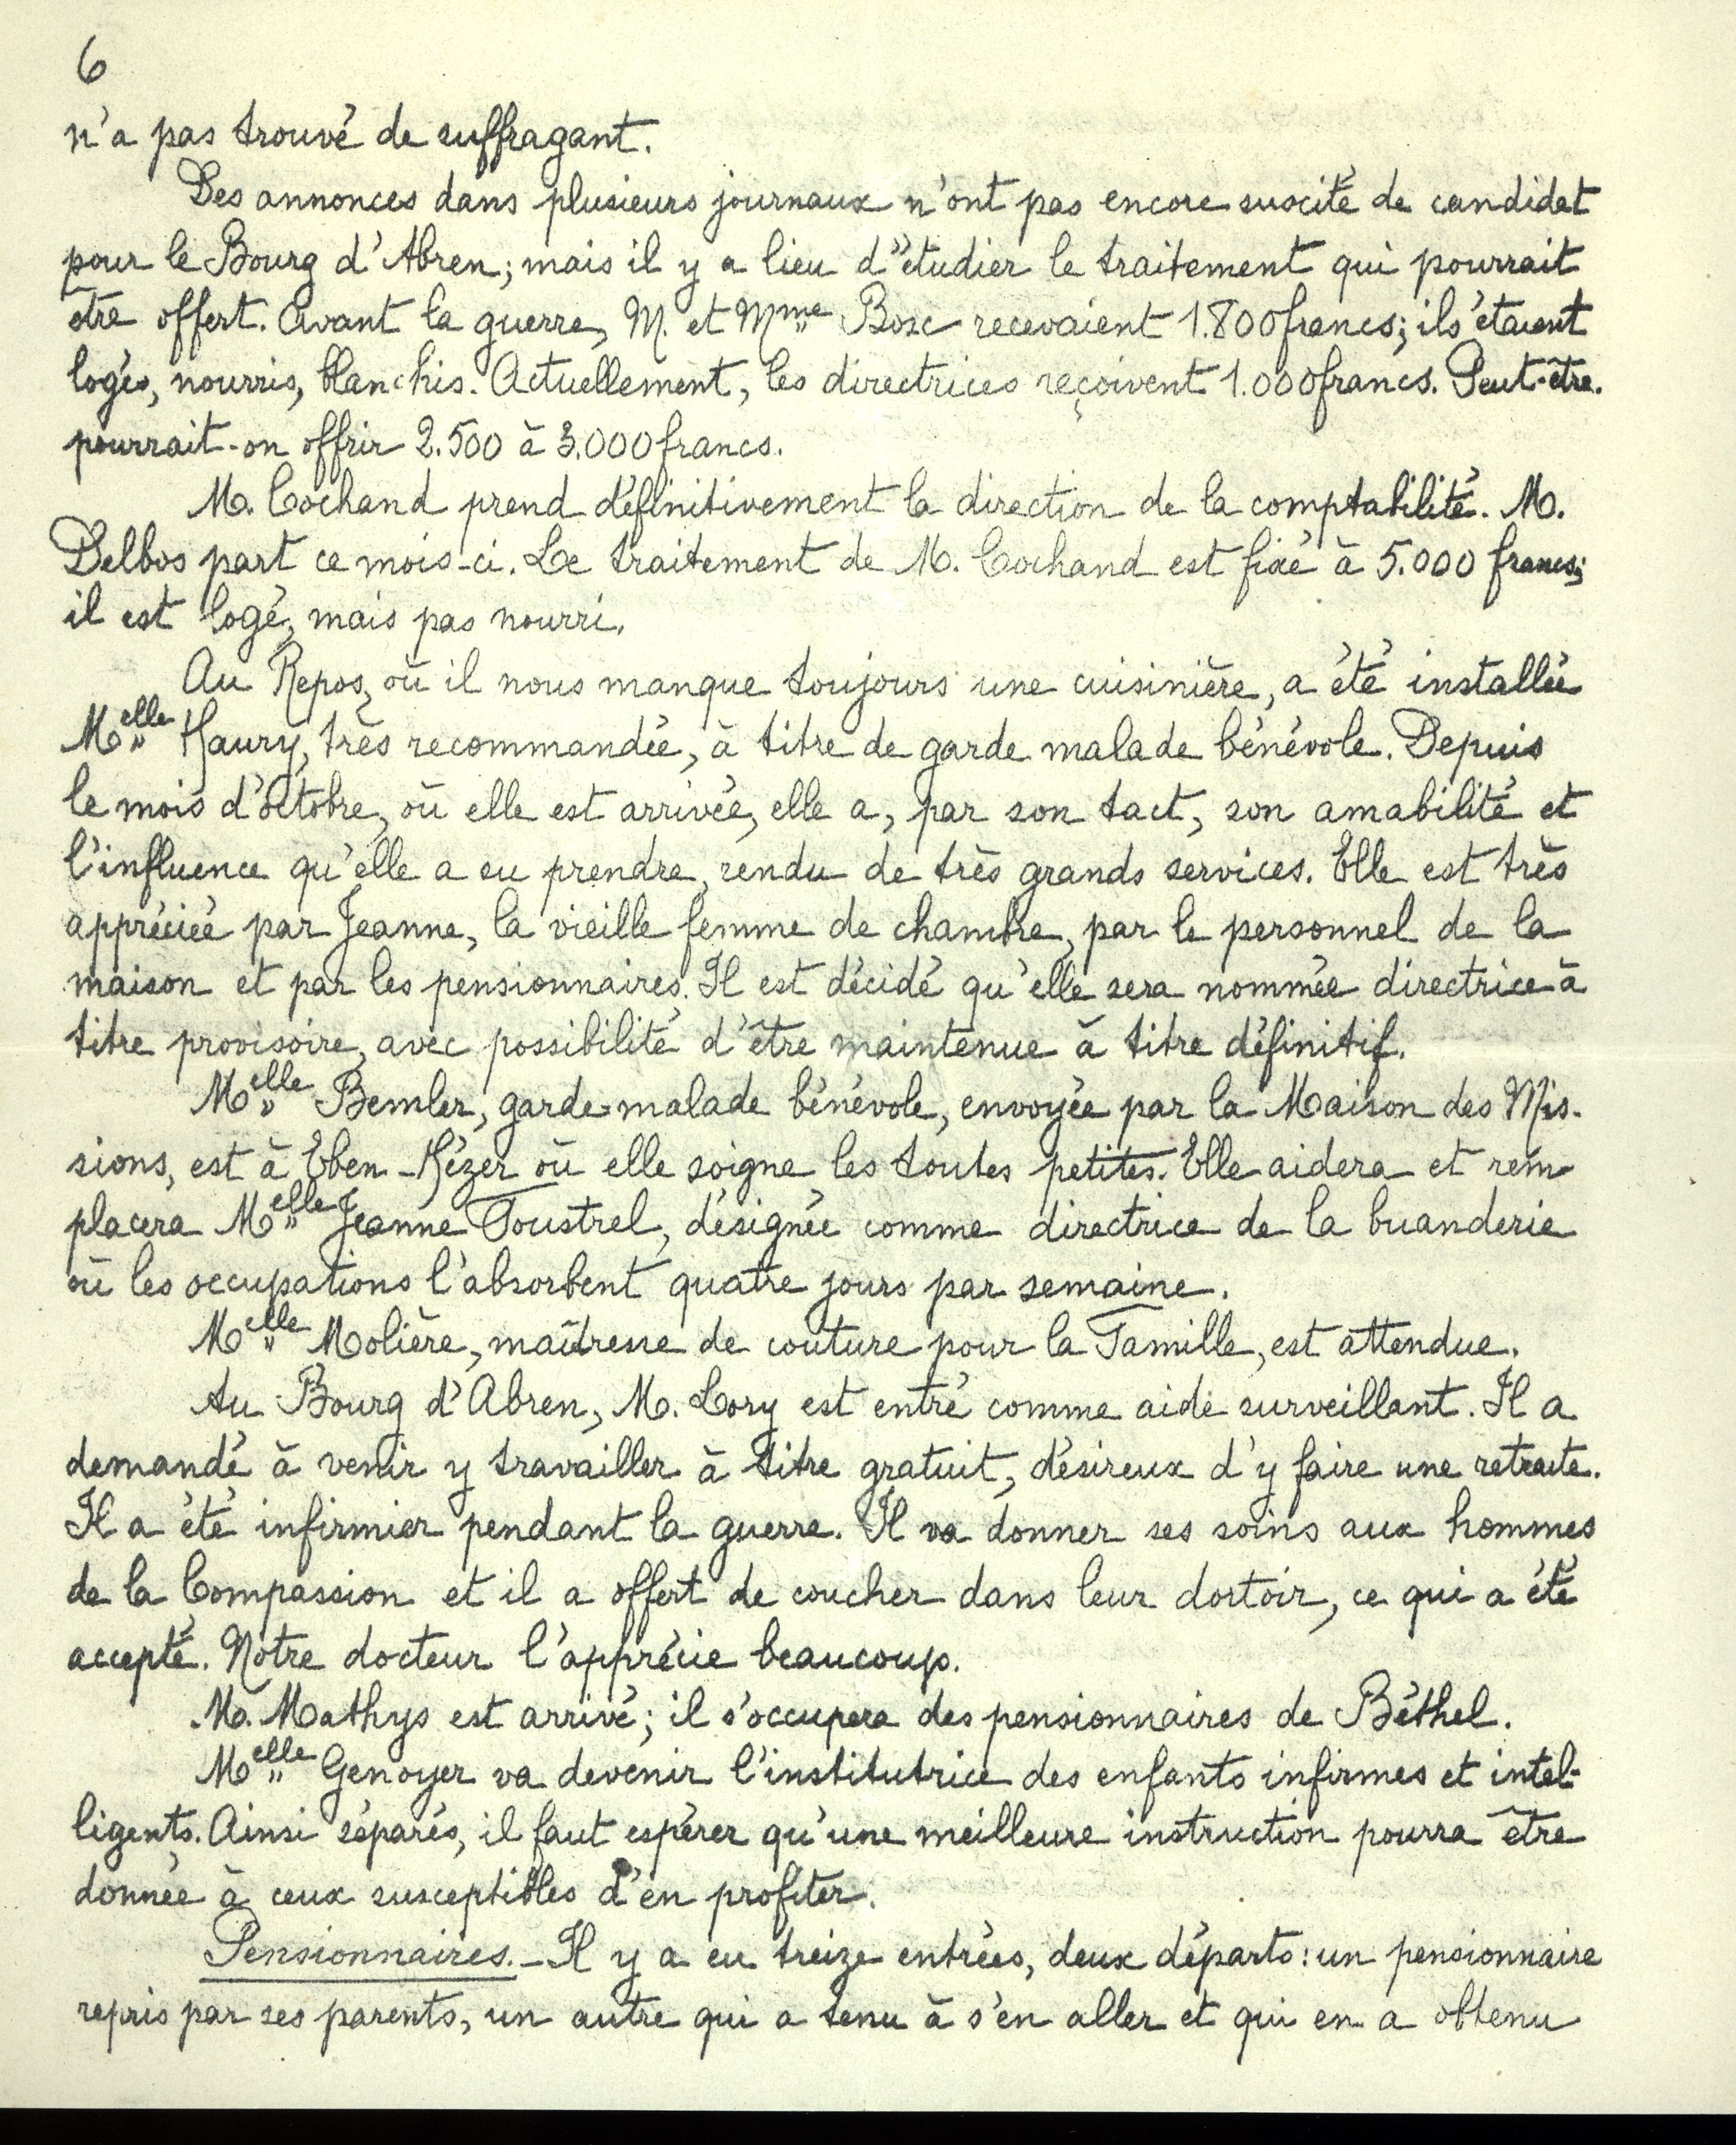 6
n'a pas trouvé de suffragant.
Des annonces dans plusieurs journaux n'ont pas encore suscité de candidat
pour le Bourg d'Abren; mais il y a lieu d'étudier le traitement qui pourrait
être offert. Avant la guerre, M. et Mme Bosc recevaient 1.800 francs; ils étaient
logés, nourris, blanchis. Actuellement, les directrices reçoivent 1.000 francs. Peut-être
pourrait-on offrir 2.500 à 3.000 francs.
M. Cochand prend définitivement la direction de la comptabilité. M.
Delbos part ce mois-ci. Le traitement de M. Cochand est fixé à 5.000 francs;
il est logé, mais pas nourri.
Au Repos, où il nous manque toujours une cuisinière, a été installée
Melle Haury, très recommandée, à titre de garde malade bénévole. Depuis
le mois d'octobre, où elle est arrivée, elle a, par son tact, son amabilité et
l'influence qu'elle a su prendre, rendu de très grands services. Elle est très
appréciée par Jeanne, la vieille femme de chambre, par le personnel de la
maison et par les pensionnaires. Il est décidé qu'elle sera nommée directrice à
titre provisoire, avec possibilité d'être maintenue à titre définitif.
Melle Bemler, garde-malade bénévole, envoyée par la Maison des Mis-
sions, est à Eben-Hézer où elle soigne les toutes petites. Elle aidera et rem
placera Melle Jeanne Toustrel, désignée comme directrice de la buanderie
où les occupations l'absorbent quatre jours par semaine.
Melle Molière, maîtresse de couture pour la Famille, est attendue.
Au Bourg d'Abren, M. Lory est entré comme aide surveillant. Il a
demandé à venir y travailler à titre gratuit, désireux d'y faire une retraite.
Il a été infirmier pendant la guerre. Il va donner ses soins aux hommes
de la Compassion et il a offert de coucher dans leur dortoir, ce qui a été
accepté. Notre docteur l'apprécie beaucoup.
M. Mathys est arrivé; il s'occupera des pensionnaires de Béthel.
Melle Genoyer va devenir l'institutrice des enfants infirmes et intel-
ligents. Ainsi séparés, il faut espérer qu'une meilleure instruction pourra être
donnée à ceux susceptibles d'en profiter.
Pensionnaires. - Il y a eu treize entrées, deux départs: un pensionnaire
repris par ses parents, un autre qui a tenu à s'en aller et qui en a obtenu